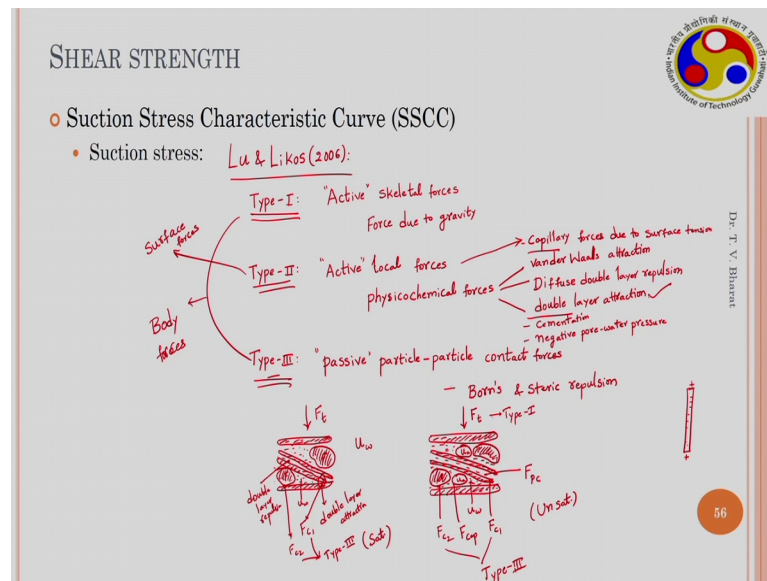 SHEAR STRENGTH
भारतीय प्रौद्योगिकी संस्थान गुवाहाटी
Indian Institute of Technology Guwahati
Suction Stress Characteristic Curve (SSCC)
• Suction stress: Lu & Likos (2006):
Type-I: "Active" skeletal forces
Force due to gravity
Surface forces
Type-II: "Active" local forces
physicochemical forces
- Capillary forces due to surface tension
Vander Waals attraction
Diffuse double layer repulsion
double layer attraction ✓
- Cementation
- negative pore-water pressure
Body forces
Type-III: "passive" particle-particle contact forces
- Born's & Steric repulsion
Ft
uw
double layer repulsion
uw
double layer attraction
Fc2
Fc1
Type-III (Sat.)
Ft → Type-I
ua
Fpc
ua
uw
(Unsat.)
Fc2 Fcap Fc1
Type-III
+
+
Dr. T. V. Bharat
56